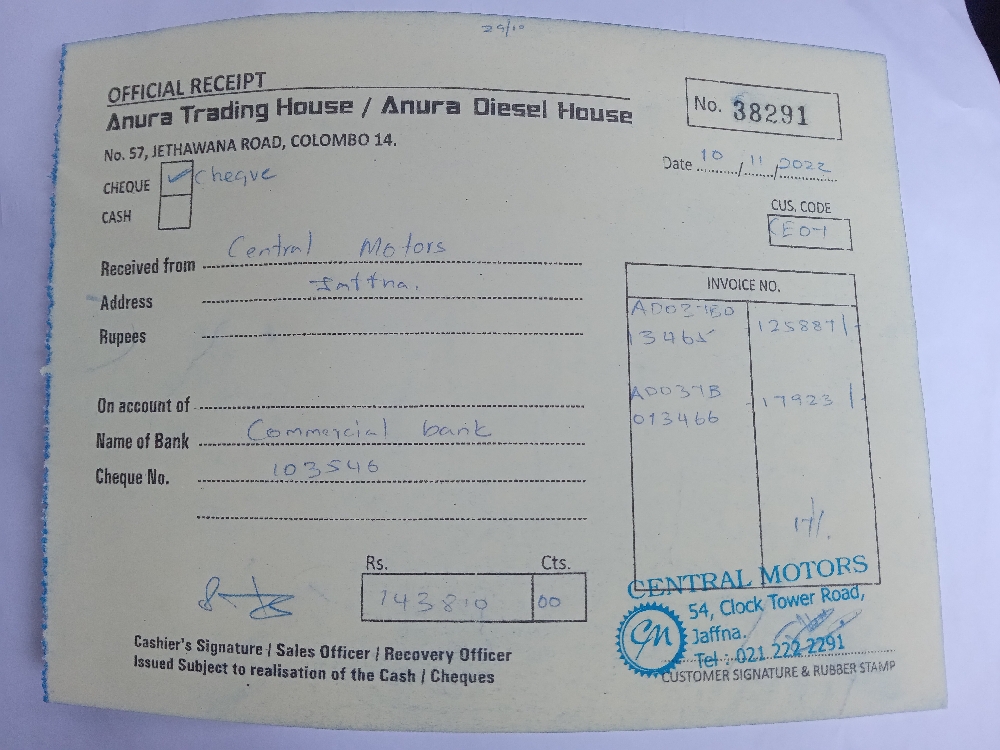 29/10
OFFICIAL RECEIPT
Anura Trading House / Anura Diesel House
No. 57, JETHAWANA ROAD, COLOMBO 14.
No. 38291
Date 10/11/2022
CHEQUE ✓ Cheqve
CASH
CUS. CODE
CE04
Received from Central Motors
Address
Rupees
On account of
Name of Bank Commercial bank
Cheque No. 103546
INVOICE NO.
13465 125887/-
AD037B 17923/-
013466
Rs. Cts.
143810 00
Cashier's Signature / Sales Officer / Recovery Officer
Issued Subject to realisation of the Cash / Cheques
CENTRAL MOTORS
54, Clock Tower Road,
Jaffna.
Tel : 021 222 2291
CM
CUSTOMER SIGNATURE & RUBBER STAMP